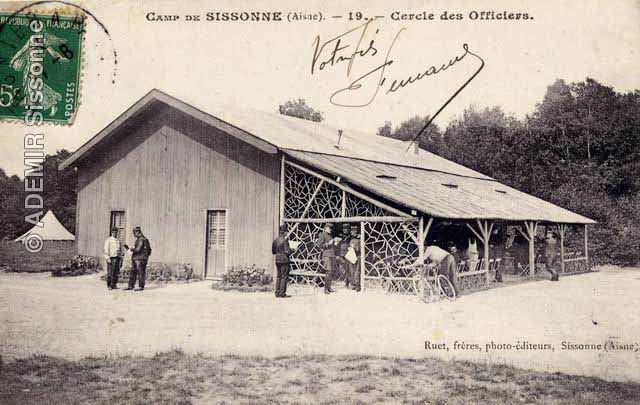 CAMP DE SISSONNE (Aisne). — 19. — Cercle des Officiers.
REPUBLIQUE FRANÇAISE
5c
POSTES
Fernand
Ruet, frères, photo-éditeurs, Sissonne (Aisne)
© ADEMIR Sissonne ©